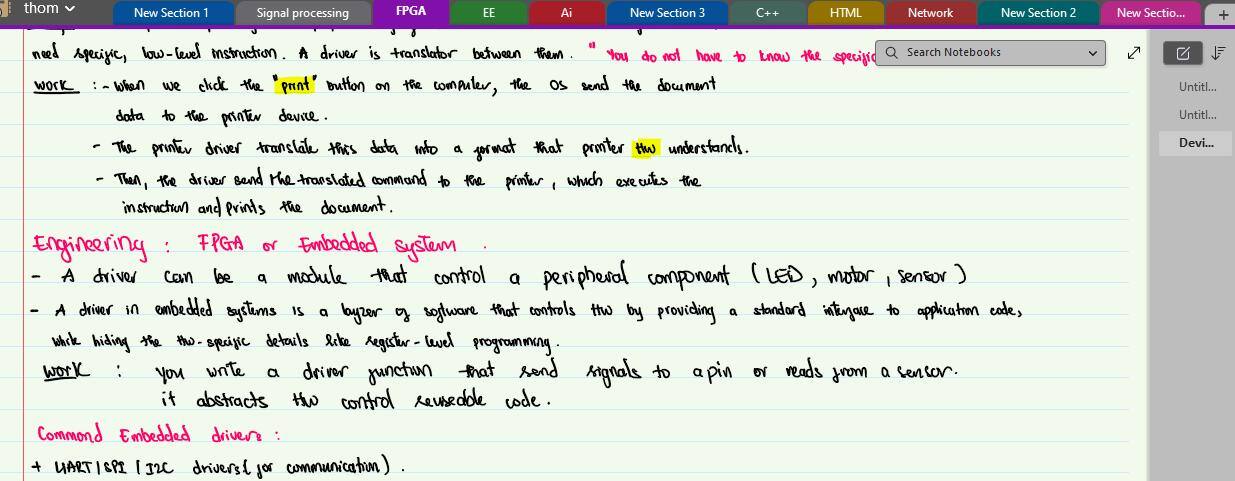 thom
New Section 1
Signal processing
FPGA
EE
Ai
New Section 3
C++
HTML
Network
New Section 2
New Sectio...
+
need specific, low-level instruction. A driver is translator between them. "You do not have to know the specific
Search Notebooks
work :- When we click the "print" button on the computer, the OS send the document
data to the printer device.
- The printer driver translate this data into a format that printer HW understands.
- Then, the driver send the translated command to the printer, which executes the
instruction and prints the document.
Engineering : FPGA or Embedded system.
- A driver can be a module that control a peripheral component (LED, motor, sensor)
- A driver in embedded systems is a layzer of software that controls HW by providing a standard interface to application code,
while hiding the HW-specific details like register-level programming.
work : you write a driver function that send signals to a pin or reads from a sensor.
it abstracts HW control reuseable code.
Command Embedded drivers :
+ UART/SPI/I2C drivers (for communication).
Untitl...
Untitl...
Devi...